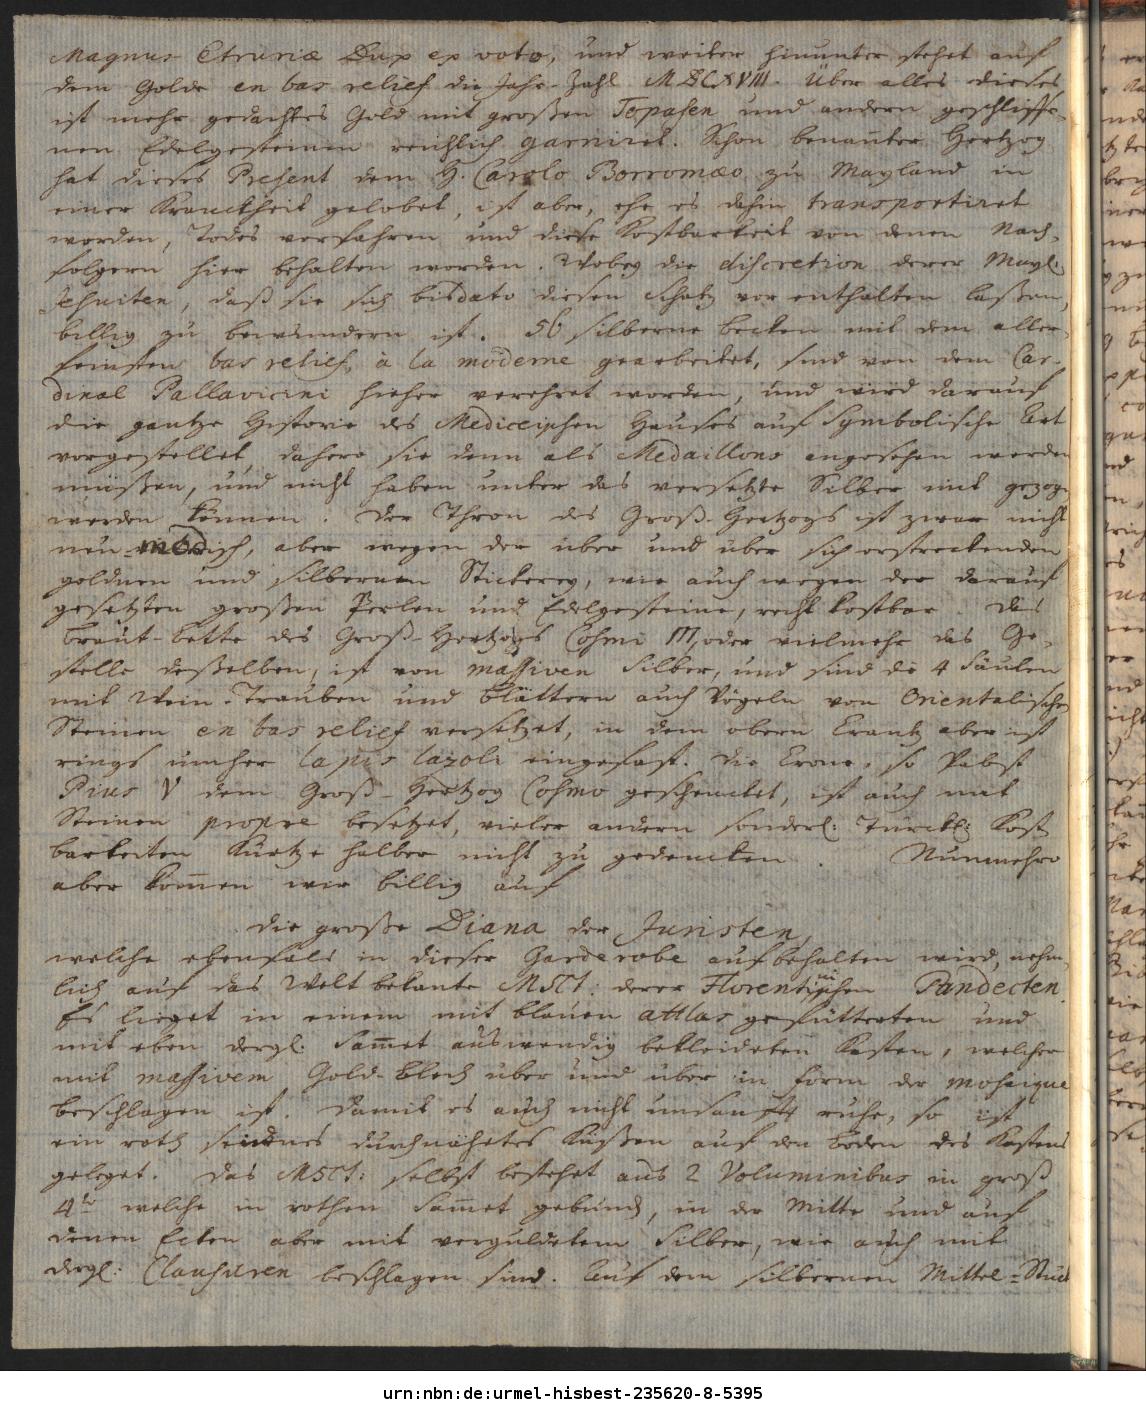 Magnus Etruriæ Dux ex voto, und weiter hinunter stehet auf
dem Golde en bas relief die Jahr-Zahl MDCXVIII. Über alles dieses
ist mehr gedachtes Gold mit großen Topasen und andern geschliffe-
nen Edelgesteinen reichlich garniret. Schon benanter Hertzog
hat dieses Present dem H. Carolo Borromæo zu Mayland in
einer Kranckheit gelobet, ist aber, ehe es dahin transportiret
worden, Todes verfahren und diese Kostbarkeit von denen Nach-
folgern hier behalten worden. Wobey die discretion derer Mayl:
Jesuiten, daß sie sich bisdato diesen Schatz vor enthalten laßen,
billig zu bewundern ist. 56 silberne becken mit dem aller-
feinsten bas relief, à la moderne gearbeitet, sind von dem Car-
dinal Pallavicini hieher verehret worden, und wird darauf
die gantze Historie des Mediceischen Hauses auf Symbolische Art
vorgestellet, dahero sie denn als Medaillons angesehen werden
müßen, und nicht haben unter das versetzte Silber mit gezog
werden können. Der Thron des Groß-Hertzogs ist zwar nicht
neu modisch, aber wegen der über und über sich erstreckenden
goldnen und silbernen Stickerey, wie auch wegen der darauf
gesetzten großen Perlen und Edelgesteine, recht kostbar. Das
braut-bette des Groß-Hertzogs Cosmi III, oder vielmehr das Ge-
stelle deßelben, ist von massiven Silber, und sind die 4 Säulen
mit Wein-Trauben und blättern auch Vögeln von Orientalischen
Steinen en bas relief versetzet, in dem obern Crantz aber ist
rings umher lapis lazoli eingefast. Die Crone, so Pabst
Pius V dem Groß-Hertzog Cosmo geschencket, ist auch mit
Steinen propre besetzet, vieler andern sonderl: Türckl: Kost
barkeiten Kürtze halber nicht zu gedencken. Nunmehro
aber kommen wir billig auf
die große Diana der Juristen,
welche ebenfals in dieser Garderobe aufbehalten wird, nehm-
lich auf das Welt bekante MSCt: derer Florentinischen Pandecten.
Es lieget in einem mit blauen attlas gefütterten und
mit eben dergl. Sammet auswendig bekleideten Kasten, welcher
mit massivem Gold-blech über und über in form der mosaique
beschlagen ist. Damit es auch nicht unsanft ruhe, so ist
ein roth seidnes durchnähetes Küßen auf den boden des Kastens
geleget. Das MSCt: selbst bestehet aus 2 Voluminibus in groß
4to welche in rothen Sammet gebund, in der Mitte und auf
denen Ecken aber mit verguldetem Silber, wie auch mit
dergl: Clausuren beschlagen sind. Auf dem silbernen Mittel-Stück
urn:nbn:de:urmel-hisbest-235620-8-5395